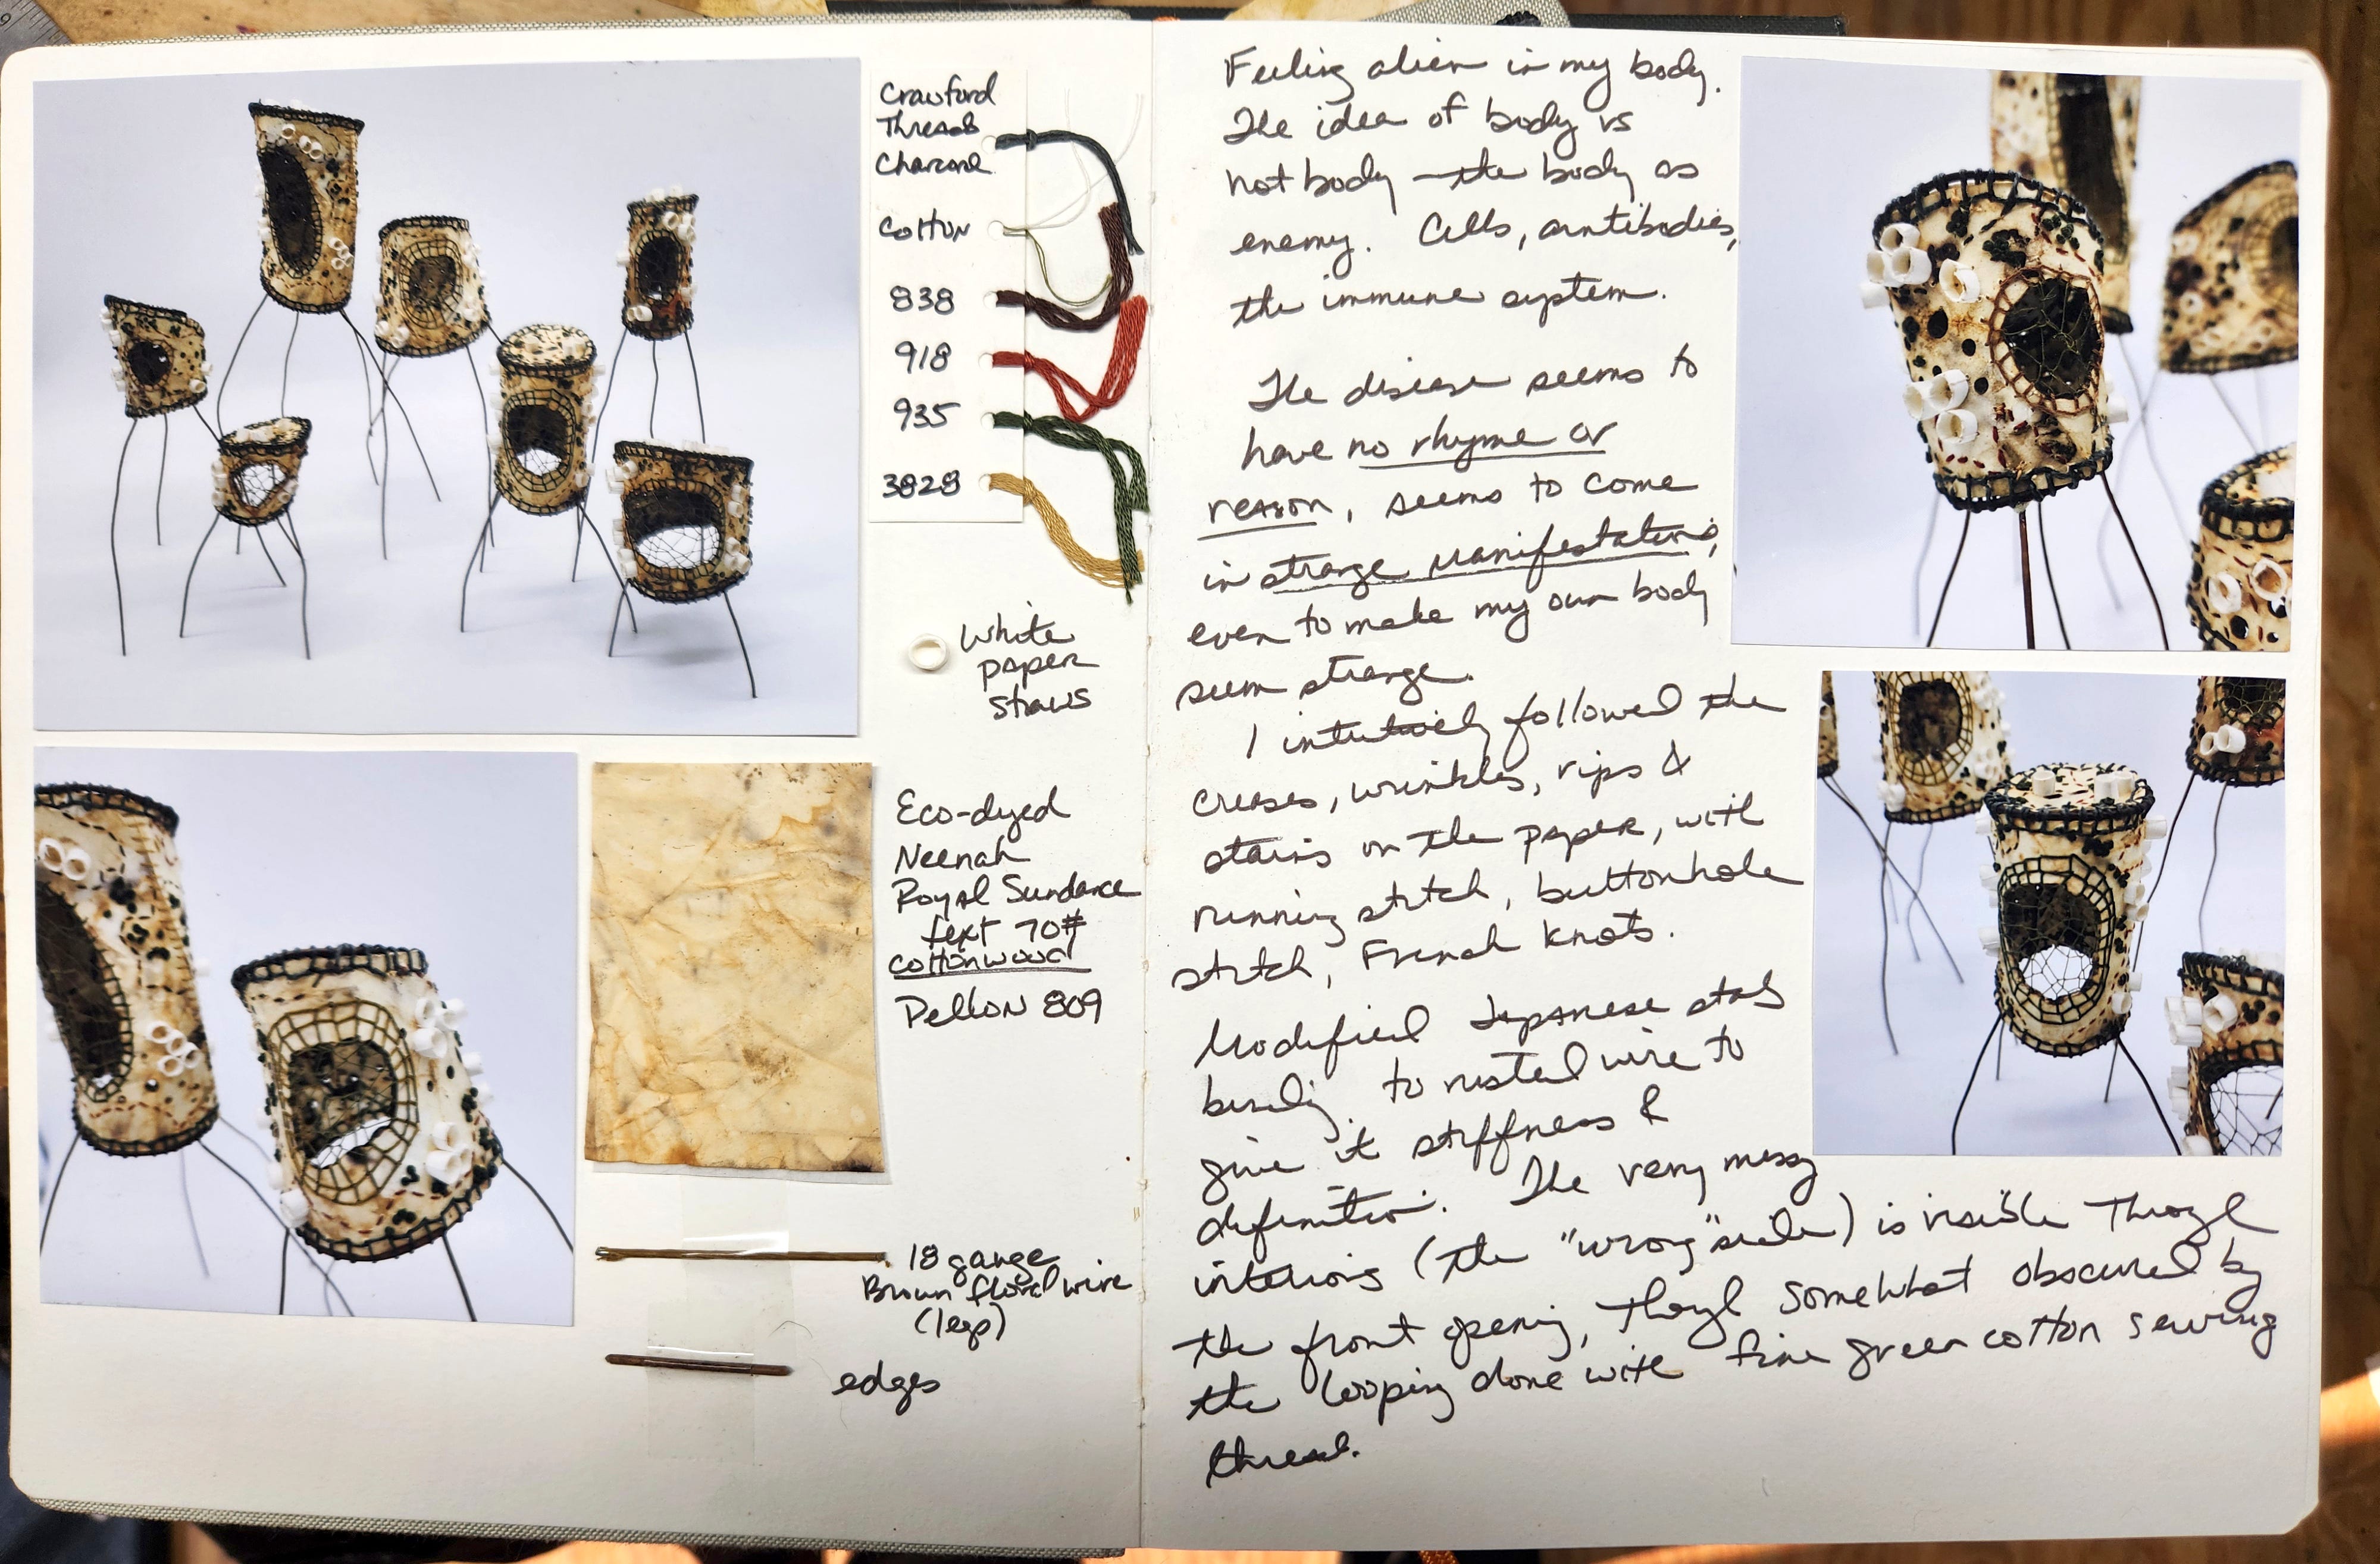 Crawford
Threads
Charcoal
Cotton
838
918
935
3828
white
paper
straws
Eco-dyed
Neenah
Royal Sundance
text 70#
cottonwood
Pellon 809
18 gauge
Brown floral wire
(legs)
edges
Feeling alien in my body.
The idea of body vs
not body — the body as
enemy. Cells, antibodies,
the immune system.
The disease seems to
have no rhyme or
reason, seems to come
in strange manifestations,
even to make my own body
seem strange.
I intuitively followed the
creases, wrinkles, rips &
stains on the paper, with
running stitch, buttonhole
stitch, French knots.
Modified Japanese stab
binding to rusted wire to
give it stiffness &
definition. The very messy
interiors (the "wrong" side) is visible through
the front opening, though somewhat obscured by
the looping done with fine green cotton sewing
thread.